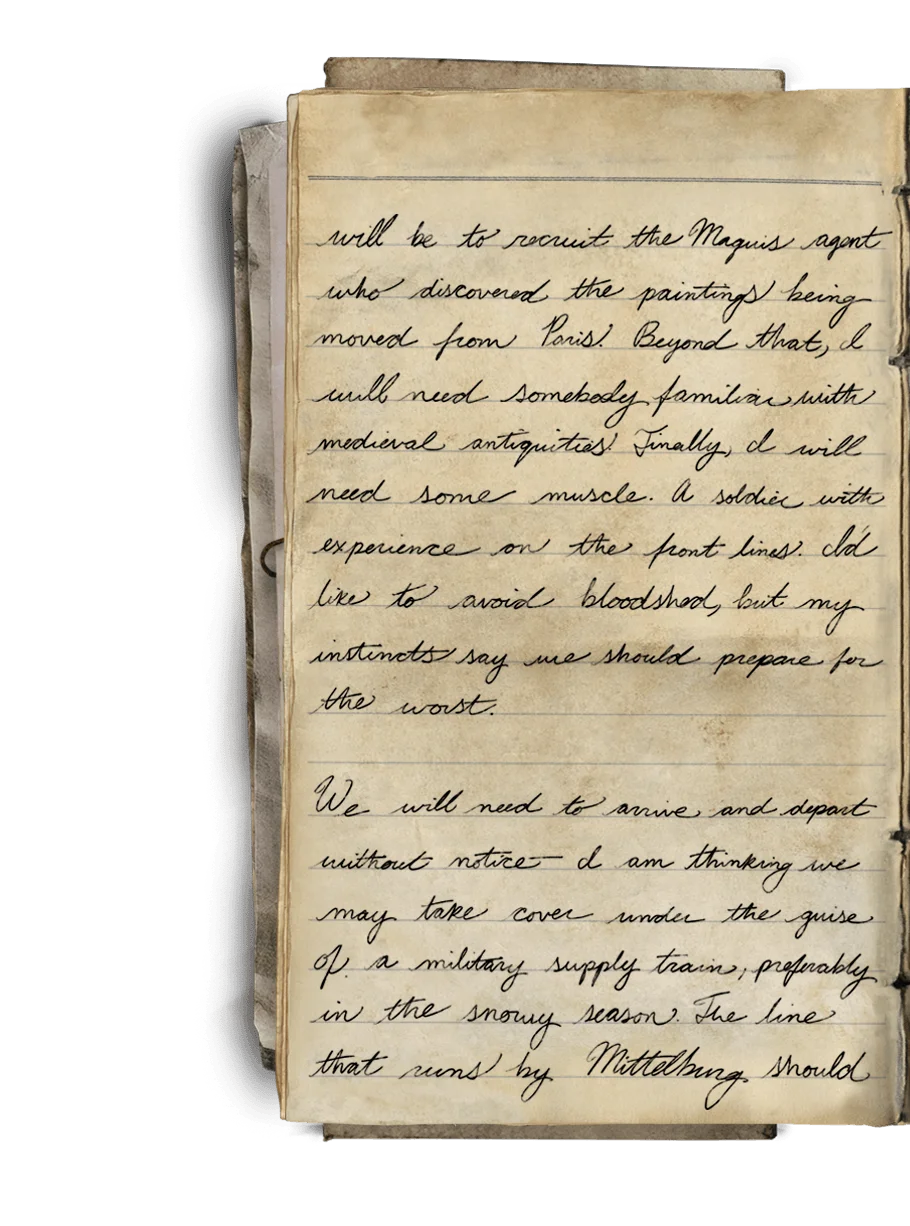 will be to recruit the Maquis agent
who discovered the paintings being
moved from Paris. Beyond that, I
will need somebody familiar with
medieval antiquities. Finally, I will
need some muscle. A soldier with
experience on the front lines. I'd
like to avoid bloodshed, but my
instincts say we should prepare for
the worst.
We will need to arrive and depart
without notice – I am thinking we
may take cover under the guise
of a military supply train, preferably
in the snowy season. The line
that runs by Mittelburg should